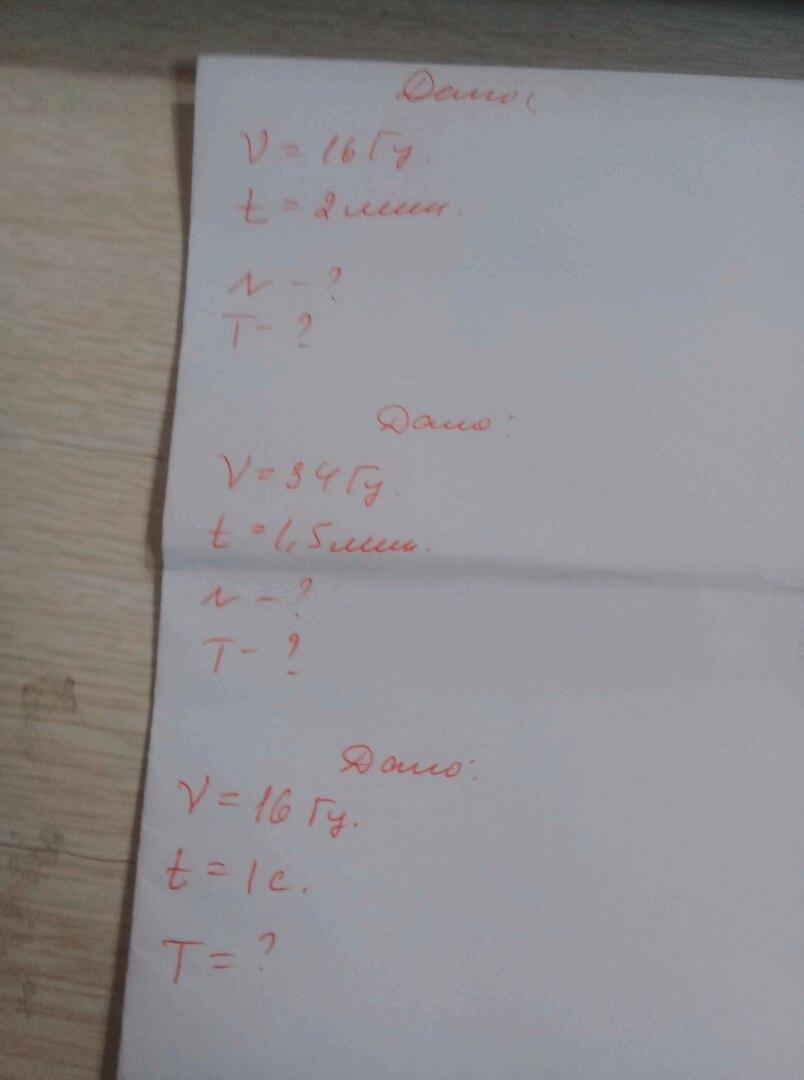 Дано:
ν = 16 Гц.
t = 2 мин.
N - ?
T - ?
Дано:
ν = 34 Гц.
t = 1,5 мин.
N - ?
T - ?
Дано:
ν = 16 Гц.
t = 1 с.
T = ?